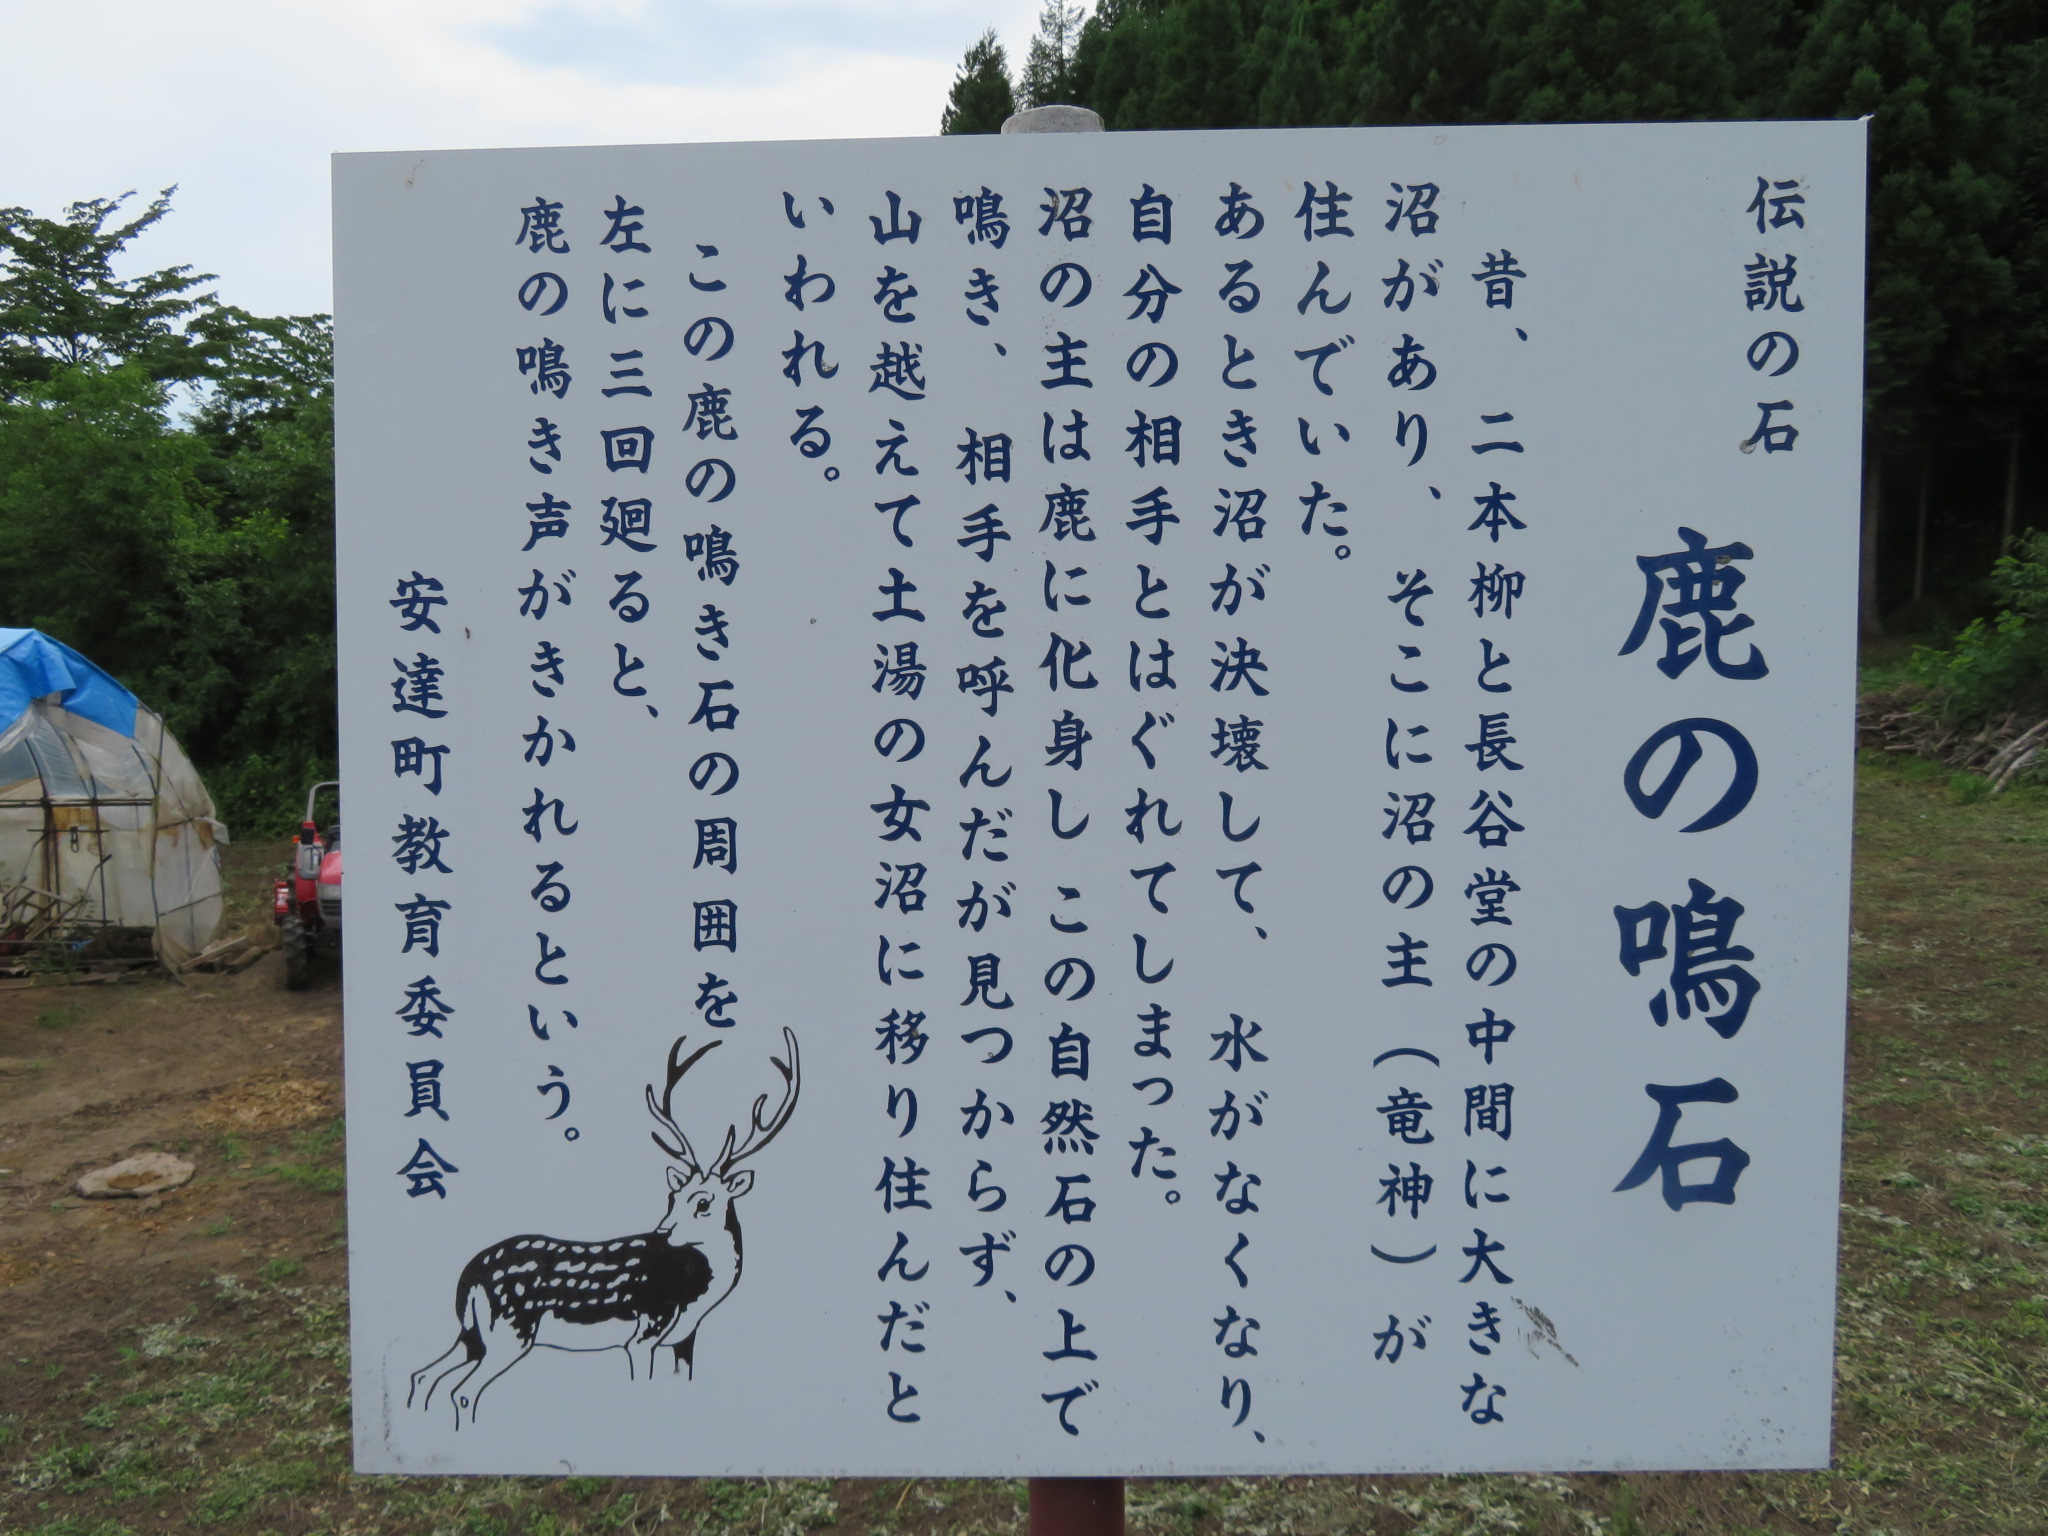 伝説の石
鹿の鳴石
昔、二本柳と長谷堂の中間に大きな
沼があり、そこに沼の主（竜神）が
住んでいた。
あるとき沼が決壊して、水がなくなり、
自分の相手とはぐれてしまった。
沼の主は鹿に化身しこの自然石の上で
鳴き、相手を呼んだが見つからず、
山を越えて土湯の女沼に移り住んだと
いわれる。
この鹿の鳴き石の周囲を
左に三回廻ると、
鹿の鳴き声がきかれるという。
安達町教育委員会